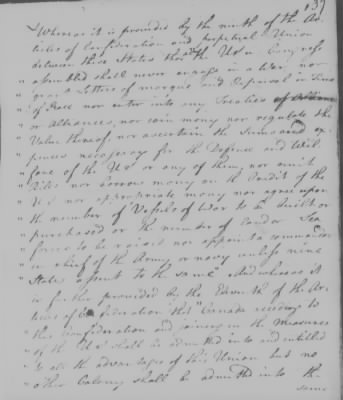 137
Whereas it is provided by the ninth of the Ar-
" ticles of Confederation and perpetual Union
" between these States that the US in Congress
" assembled shall never engage in a War, nor
" grant Letters of marque and Reprisal in time
" of Peace nor enter into any Treaties
" or Alliances, nor coin money nor regulate the
" Value thereof, nor ascertain the Sums and ex-
" pences necessary for the Defence and Wel-
" fare of the US or any of them, nor emit
" Bills nor borrow money on the Credit of the
" US nor appropriate money nor agree upon
" the number of Vessels of War to be built or
" purchased or the number of Land or Sea
" forces to be raised nor appoint a commander
" in chief of the Army or navy unless nine
" States assent to the same And whereas it
" is further provided by the Eleventh of the Ar-
" ticles of Confederation that Canada acceding to
" this confederation and joining in the Measures
" of the US shall be admitted into and entitled
" to all the advantages of this Union but no
" other Colony shall be admitted into the
same